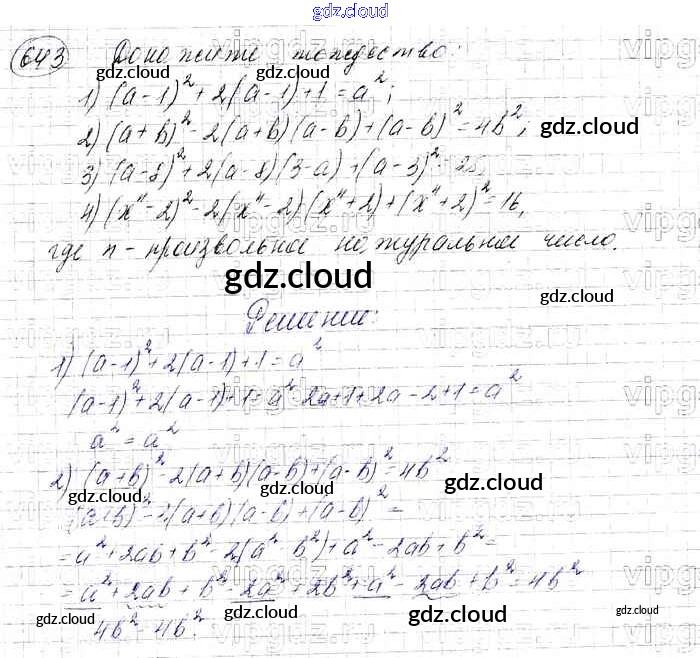 gdz.cloud
643 Докажите тождество:
gdz.cloud gdz.cloud
1) (a-1)² + 2(a-1)+1 = a²;
2) (a+b)² - 2(a+b)(a-b)+(a-b)² = 4b²;
gdz.cloud
3) (a-8)² + 2(a-8)(3-a)+(a-3)² = 25,
4) (xⁿ-2)² - 2(xⁿ-2)(xⁿ+2)+(xⁿ+2)² = 16,
где n - произвольное натуральное число.
gdz.cloud gdz.cloud
Решение:
1) (a-1)² + 2(a-1)+1 = a²
(a-1)² + 2(a-1)+1 = a² - 2a+1+2a-2+1 = a²
gdz.cloud
a² = a²
2) (a+b)² - 2(a+b)(a-b)+(a-b)² = 4b²
gdz.cloud gdz.cloud
(a+b)² - 2(a+b)(a-b)+(a-b)² =
= a²+2ab+b² - 2(a²-b²)+a² - 2ab+b² =
= a²+2ab+b² - 2a² + 2b² + a² - 2ab + b² = 4b²
gdz.cloud gdz.cloud gdz.cloud gdz.cloud
4b² = 4b².